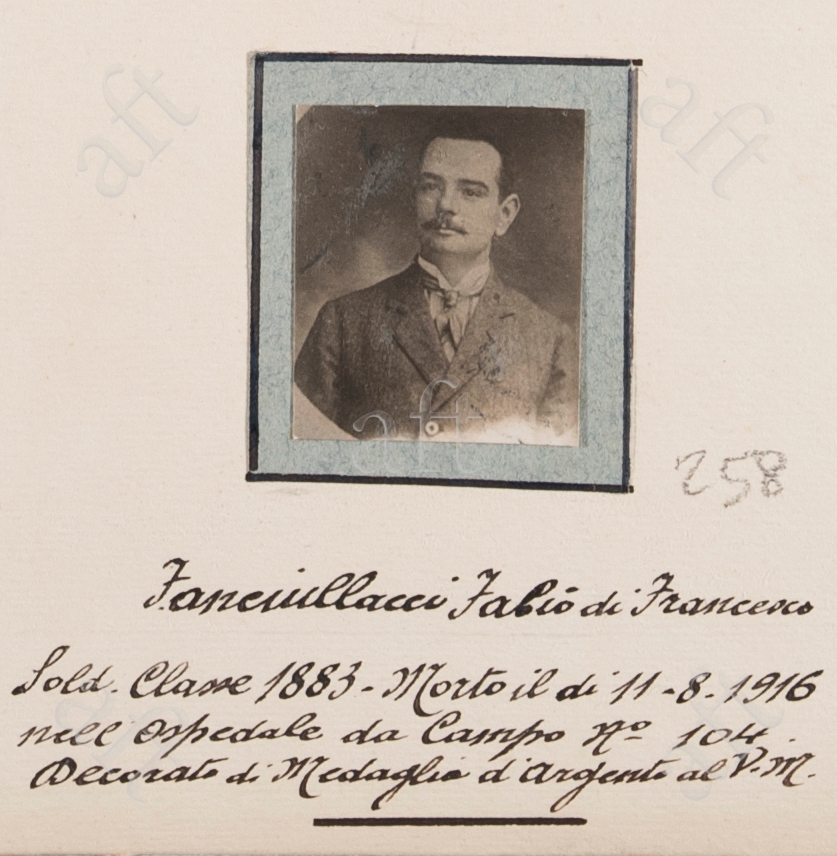 aft aft
aft
258
Fanciullacci Fabio di Francesco
Sold. Classe 1883 - Morto il di 11 - 8 - 1916
nell'Ospedale da Campo Nº 104.
Decorato di Medaglia d'argento al V.M.
aft aft